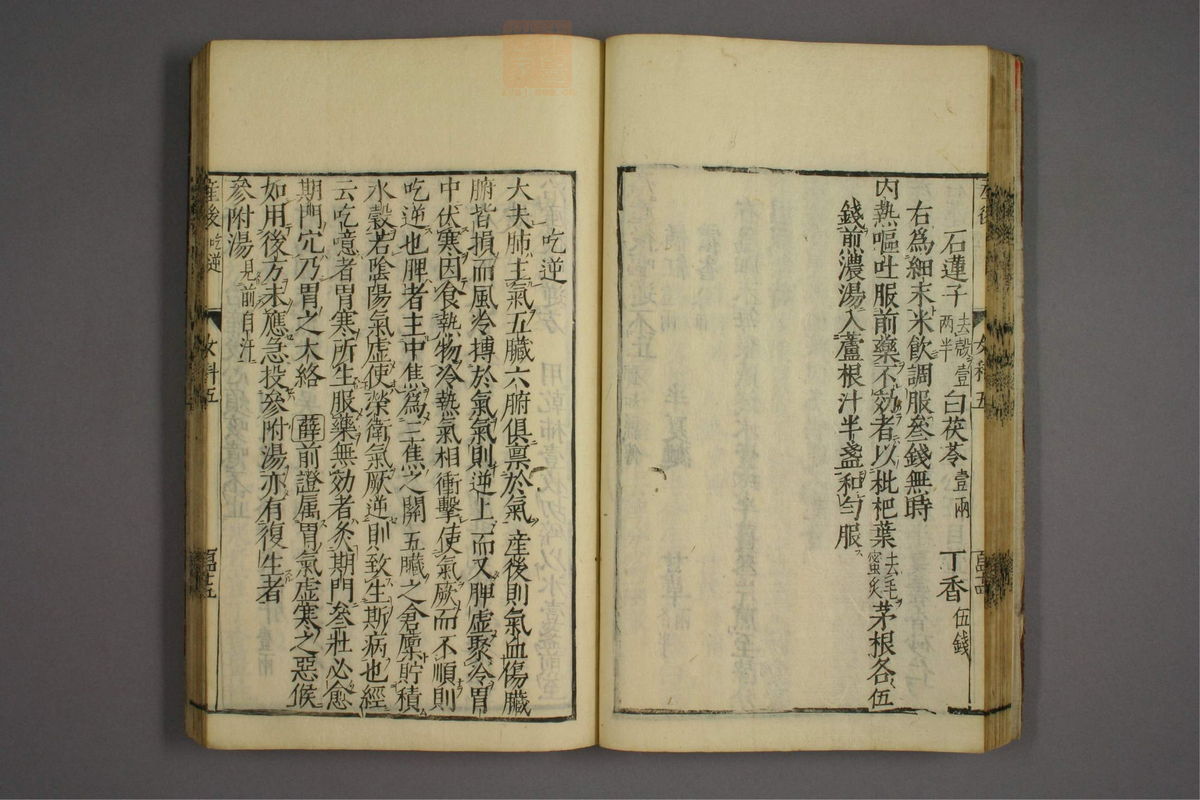 石蓮子去殼壹両半 白茯苓壹兩 丁香伍錢
右為細末米飲調服叄錢無時
内熱嘔吐服前藥不効者以枇杷葉去毛蜜炙茅根各伍
錢煎濃湯入蘆根汁半盞和勻服
吃逆
大夫肺主氣五臟六腑俱禀於氣産後則氣血傷臟
腑皆損而風冷摶於氣氣則逆上而又脾虛聚冷胃
中伏寒因食熱物冷熱氣相衝擊使氣厥而不順則
吃逆也脾者主中焦為三焦之關五臟之倉廩貯積
水穀若陰陽氣虛使榮衛氣厥逆則致生斯病也經
云吃噫者胃寒所生服藥無効者灸期門叄壯必愈
期門穴乃胃之大絡 薛前證属胃氣虛寒之惡候
如用後方未應急投參附湯亦有復生者
參附湯見前自汗
産後 吃逆 女科五